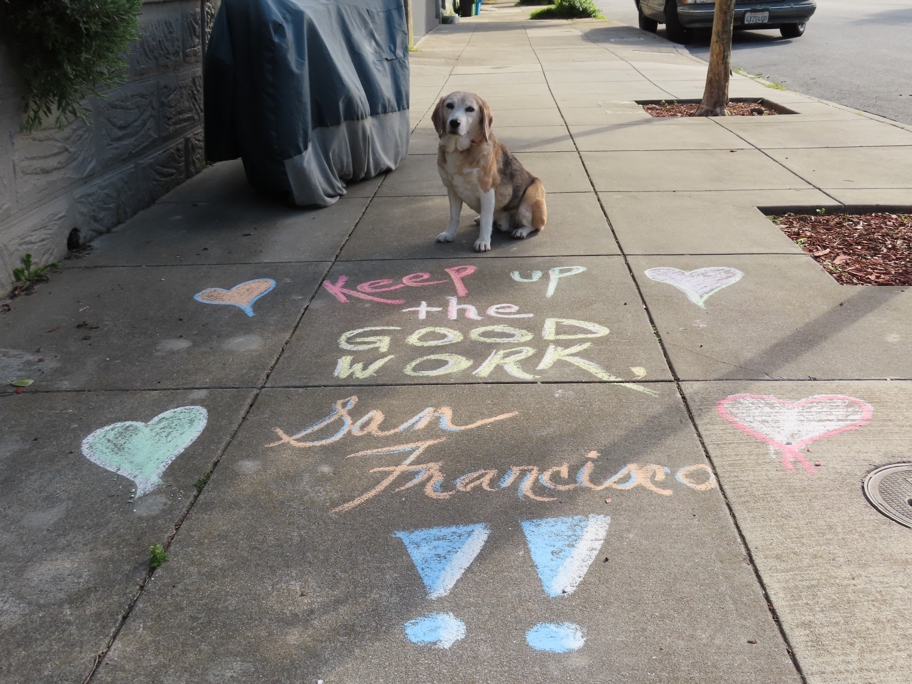 Keep up
the
GOOD
WORK,
San
Francisco
!!